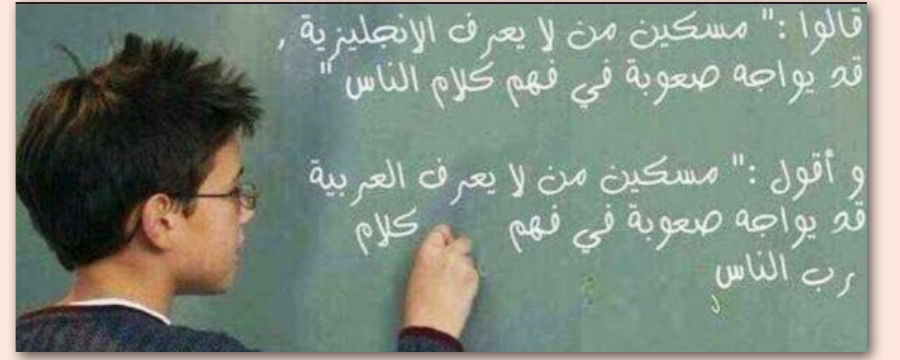 قالوا :" مسكين من لا يعرف الانجليزية ,
قد يواجه صعوبة في فهم كلام الناس "
و أقول :" مسكين من لا يعرف العربية
قد يواجه صعوبة في فهم كلام
رب الناس